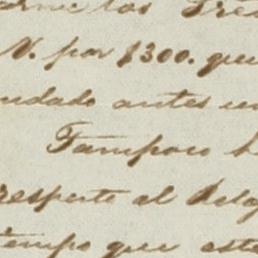 las Tres
V. por $300. que
ndado antes un
Tampoco h
respecto al Delg
tiempo que este